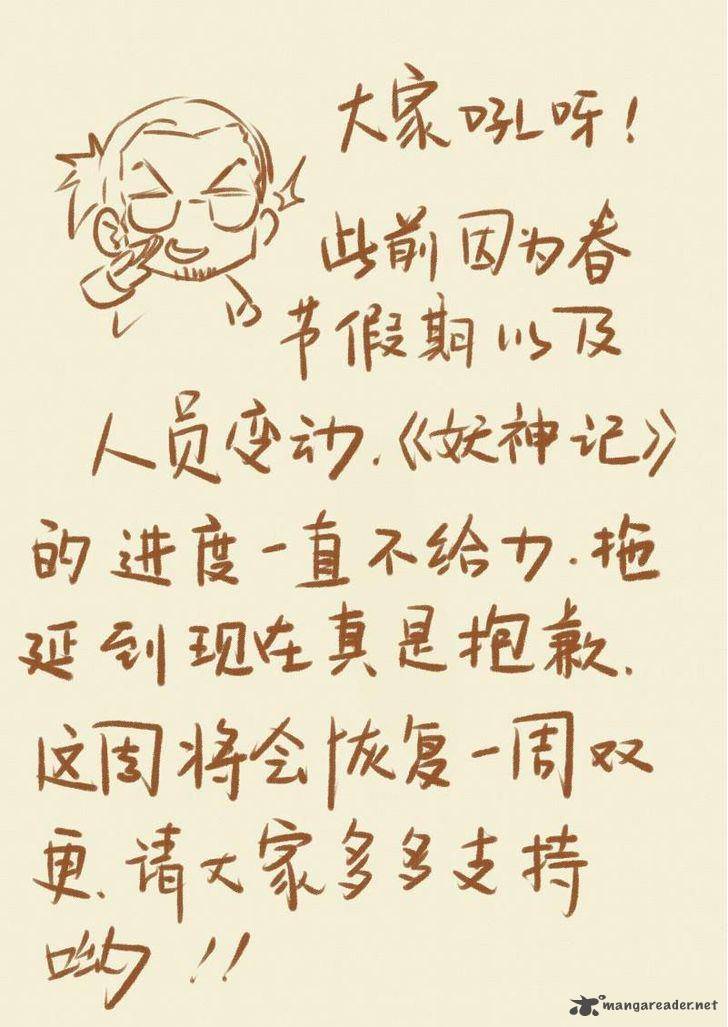 大家吼呀！
此前因为春
节假期以及
人员变动.《妖神记》
的进度一直不给力.拖
延到现在真是抱歉.
这周将会恢复一周双
更.请大家多多支持
呦！！
mangareader.net